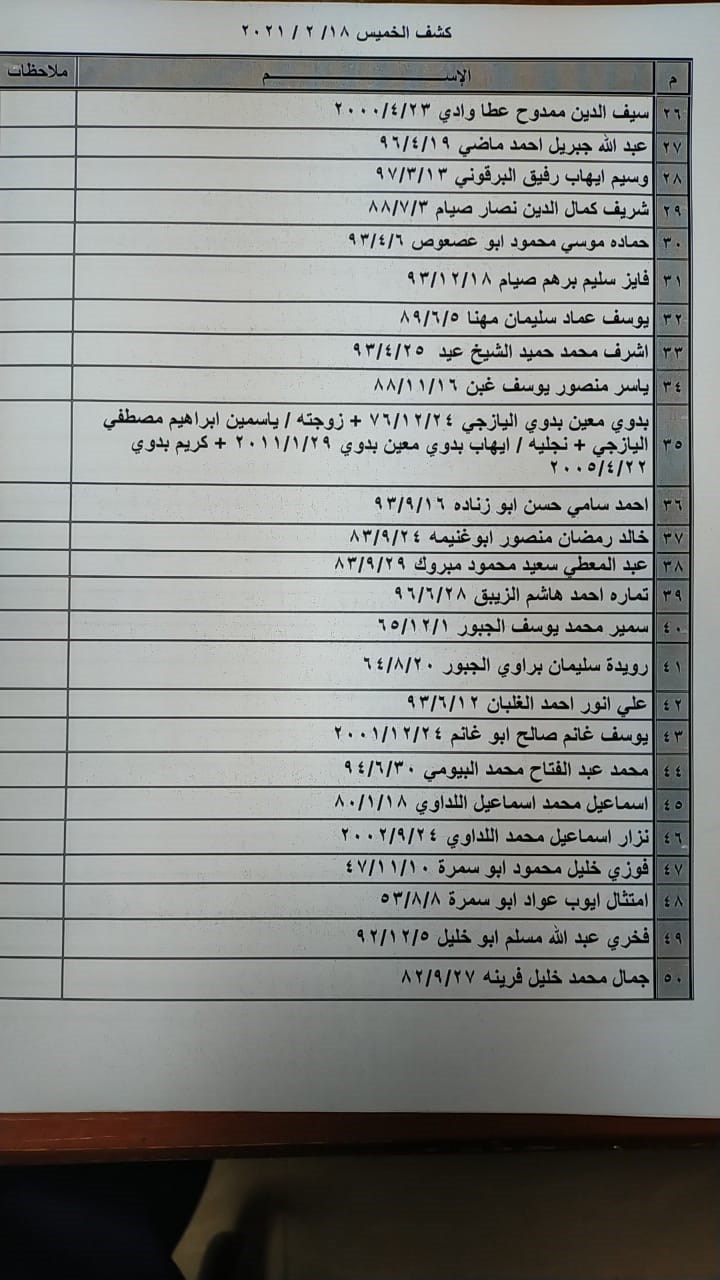 كشف الخميس ١٨/ ٢ / ٢٠٢١
م الإســـــم ملاحظات
٢٦ سيف الدين ممدوح عطا وادي ٢٠٠٠/٤/٢٣
٢٧ عبد الله جبريل احمد ماضي ٩٦/٤/١٩
٢٨ وسيم ايهاب رفيق البرقوني ٩٧/٣/١٣
٢٩ شريف كمال الدين نصار صيام ٨٨/٧/٣
٣٠ حماده موسي محمود ابو عصعوص ٩٣/٤/٦
٣١ فايز سليم برهم صيام ٩٣/١٢/١٨
٣٢ يوسف عماد سليمان مهنا ٨٩/٦/٥
٣٣ اشرف محمد حميد الشيخ عيد ٩٣/٤/٢٥
٣٤ ياسر منصور يوسف غبن ٨٨/١١/١٦
٣٥ بدوي معين بدوي اليازجي ٧٦/١٢/٢٤ + زوجته / ياسمين ابراهيم مصطفي
اليازجي + نجليه / ايهاب بدوي معين بدوي ٢٠١١/١/٢٩ + كريم بدوي
٢٠٠٥/٤/٢٢
٣٦ احمد سامي حسن ابو زناده ٩٣/٩/١٦
٣٧ خالد رمضان منصور ابوغنيمه ٨٣/٩/٢٤
٣٨ عبد المعطي سعيد محمود مبروك ٨٣/٩/٢٩
٣٩ تماره احمد هاشم الزيبق ٩٦/٦/٢٨
٤٠ سمير محمد يوسف الجبور ٦٥/١٢/١
٤١ رويدة سليمان براوي الجبور ٦٤/٨/٢٠
٤٢ علي انور احمد الغلبان ٩٣/٦/١٢
٤٣ يوسف غانم صالح ابو غانم ٢٠٠١/١٢/٢٤
٤٤ محمد عبد الفتاح محمد البيومي ٩٤/٦/٣٠
٤٥ اسماعيل محمد اسماعيل اللداوي ٨٠/١/١٨
٤٦ نزار اسماعيل محمد اللداوي ٢٠٠٢/٩/٢٤
٤٧ فوزي خليل محمود ابو سمرة ٤٧/١١/١٠
٤٨ امتثال ايوب عواد ابو سمرة ٥٣/٨/٨
٤٩ فخري عبد الله مسلم ابو خليل ٩٢/١٢/٥
٥٠ جمال محمد خليل فرينه ٨٢/٩/٢٧